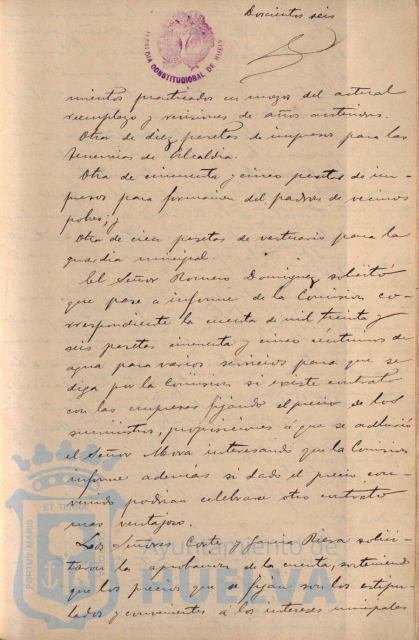 Doscientos seis
ALCALDIA CONSTITUCIONAL DE HUELVA
mientos practicados en mozos del actual
reemplazo y revisiones de años anteriores.
Otra de diez pesetas de impresos para las
tenencias de Alcaldía.
Otra de cincuenta y cinco pesetas de im-
presos para formación del padrón de vecinos
pobres; y
Otra de cien pesetas de vestuario para la
guardia municipal.
El Señor Romero Dominguez solicitó
que pase a informe de la Comision co-
rrespondiente la cuenta de mil treinta y
seis pesetas cincuenta y cinco centimos de
agua para varios servicios para que se
diga por la Comision si existe contrato
con las empresas fijando el precio de los
suministros, proposiciones á que se adhirió
el Señor Mora interesando que la Comision
informe además si dado el precio con-
venido podrían celebrarse otro contrato
mas ventajoso.
Los Señores Corte y Garcia Riera solici-
taron la aprobacion de la cuenta, sosteniendo
que los precios que se fijan son los estipu-
lados y convenientes á los intereses municipales
PORTUS MARIS
ET TERRAE
Ayuntamiento de
HUELVA